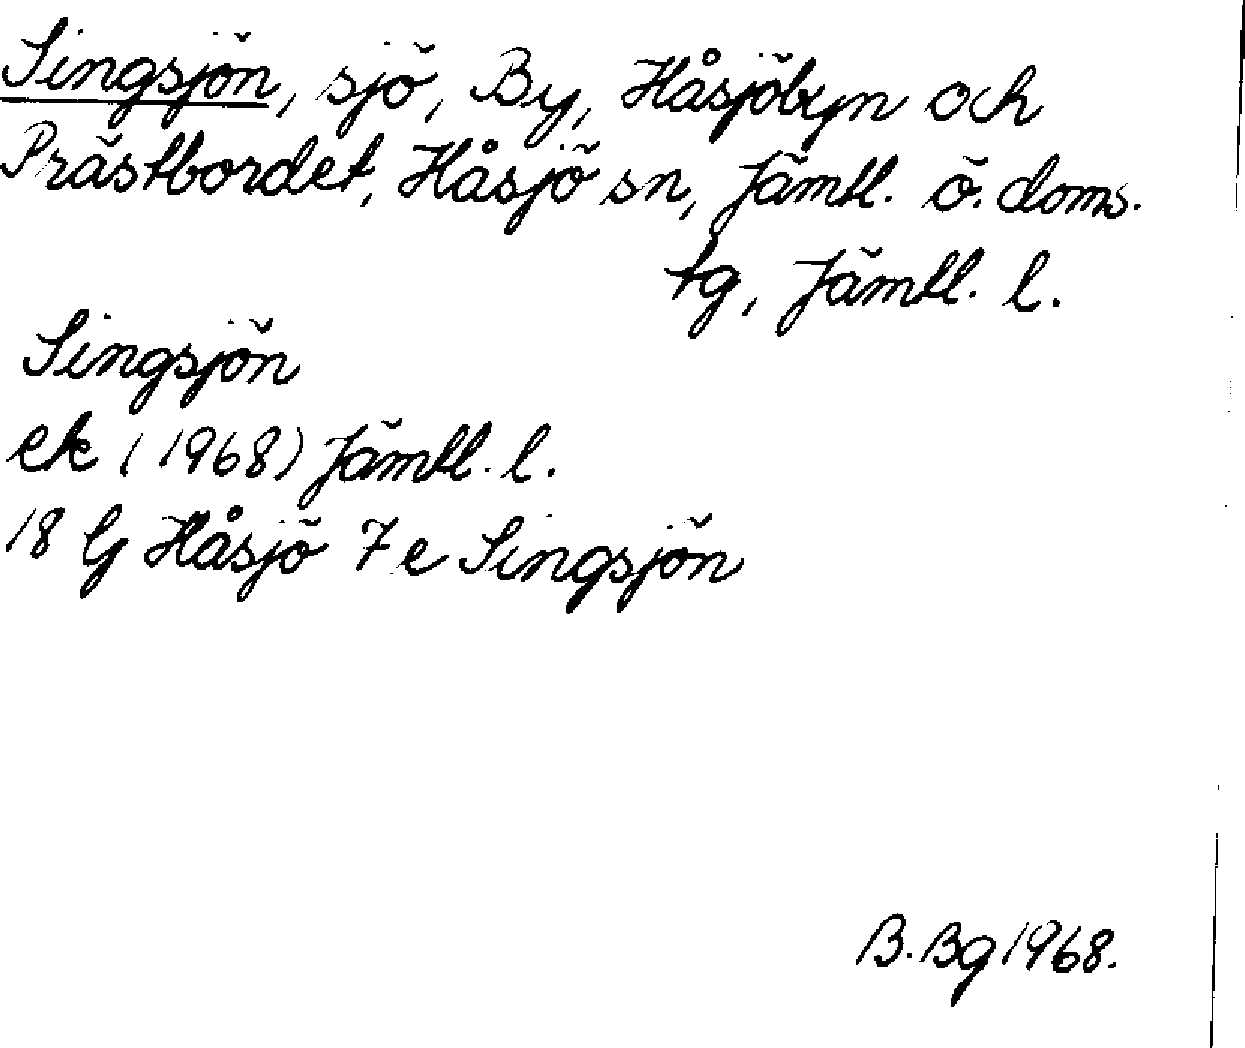 Singsjön, sjö, By, Håsjöbyn och
Prästbordet, Håsjö sn, Jämtl. ö. doms.
tg, Jämtl. l.
Singsjön
ek (1968) Jämtl. l.
18 G Håsjö 7 e Singsjön
B. Bg 1968.